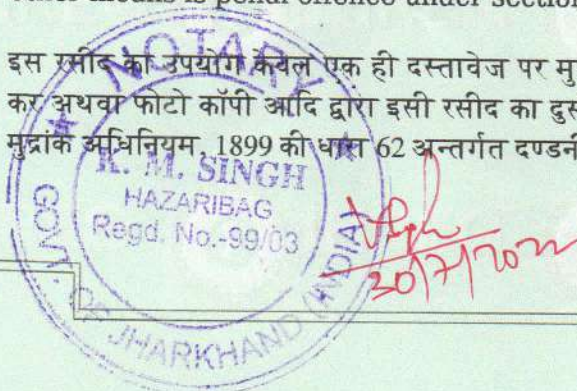 other means is penal offence under section
इस रसीद का उपयोग केवल एक ही दस्तावेज पर मु
कर अथवा फोटो कॉपी आदि द्वारा इसी रसीद का दुस
मुद्रांक अधिनियम, 1899 की धारा 62 अन्तर्गत दण्डनी
NOTARY
K. M. SINGH
HAZARIBAG
Regd. No.-99/03
GOVT. OF JHARKHAND (INDIA)
30/7/2022